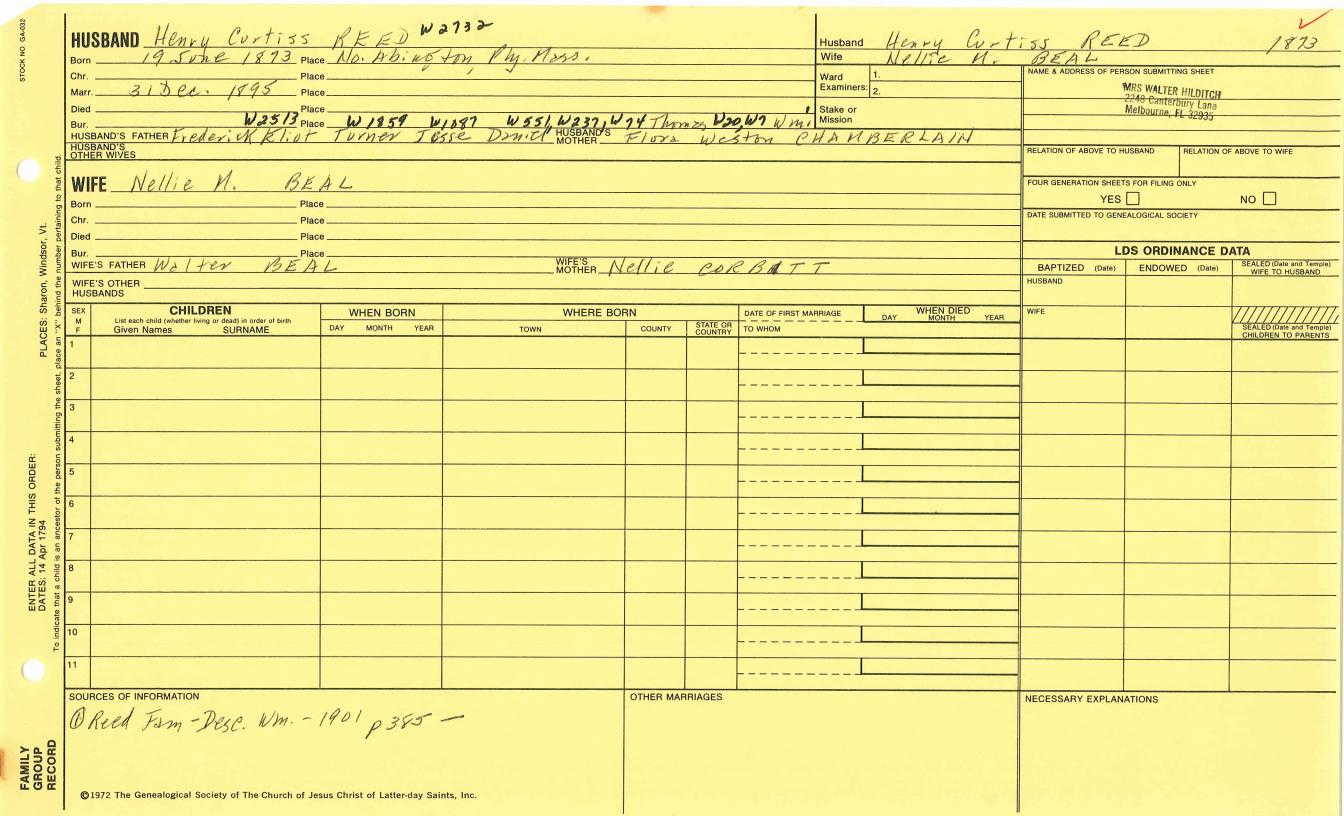 STOCK NO. GA-032
HUSBAND Henry Curtiss REED W2732
Born 19 June 1873 Place No. Abington, Ply. Mass.
Chr. Place
Marr. 31 Dec. 1895 Place
Died Place
Bur. Place
W2513 W1859 W1087 W551, W237, W74 W20, W7
HUSBAND'S FATHER Frederick Eliot Turner Jesse Daniel Thomas Wm. HUSBAND'S MOTHER Flora Weston CHAMBERLAIN
HUSBAND'S OTHER WIVES
WIFE Nellie M. BEAL
Born Place
Chr. Place
Died Place
Bur. Place
WIFE'S FATHER Walter BEAL WIFE'S MOTHER Nellie CORBATT
WIFE'S OTHER HUSBANDS
Husband Henry Curtiss REED 1873
Wife Nellie M. BEAL
Ward Examiners: 1.
2.
Stake or Mission
NAME & ADDRESS OF PERSON SUBMITTING SHEET
MRS WALTER HILDITCH
2248 Canterbury Lane
Melbourne, FL 32935
RELATION OF ABOVE TO HUSBAND RELATION OF ABOVE TO WIFE
FOUR GENERATION SHEETS FOR FILING ONLY
YES NO
DATE SUBMITTED TO GENEALOGICAL SOCIETY
LDS ORDINANCE DATA
BAPTIZED (Date) ENDOWED (Date) SEALED (Date and Temple) WIFE TO HUSBAND
HUSBAND
WIFE
SEALED (Date and Temple) CHILDREN TO PARENTS
SEX M F
CHILDREN
List each child (whether living or dead) in order of birth
Given Names SURNAME
WHEN BORN
DAY MONTH YEAR
WHERE BORN
TOWN COUNTY STATE OR COUNTRY
DATE OF FIRST MARRIAGE
TO WHOM
WHEN DIED
DAY MONTH YEAR
1
2
3
4
5
6
7
8
9
10
11
SOURCES OF INFORMATION
① Reed Fam - Desc. Wm. - 1901 p 385 —
OTHER MARRIAGES
NECESSARY EXPLANATIONS
©1972 The Genealogical Society of The Church of Jesus Christ of Latter-day Saints, Inc.
FAMILY GROUP RECORD
ENTER ALL DATA IN THIS ORDER:
DATES: 14 Apr 1794 PLACES: Sharon, Windsor, Vt.
To indicate that a child is an ancestor of the person submitting the sheet, place an "X" behind the number pertaining to that child.